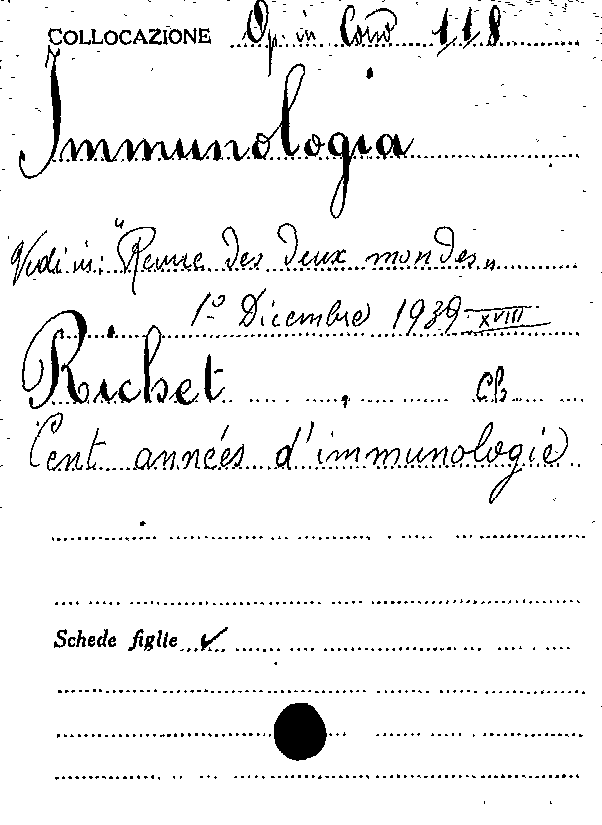 COLLOCAZIONE Op. in Cons 118
Immunologia
Vedi in: "Revue des deux mondes„
1º Décembre 1939 - XVIII
Richet , Ch
Cent années d'immunologie
Schede figlie ✓